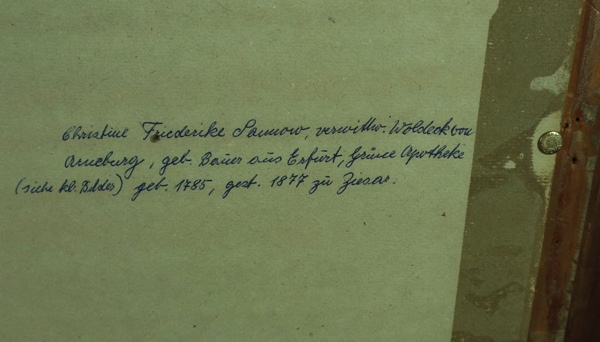 Christine Friederike Sannow, verwittw. Woldeck von
Arneburg, geb. Bauer aus Erfurt, Grüne Apotheke
(siehe kl. Bilder) geb. 1785, gest. 1877 zu Ziesar.